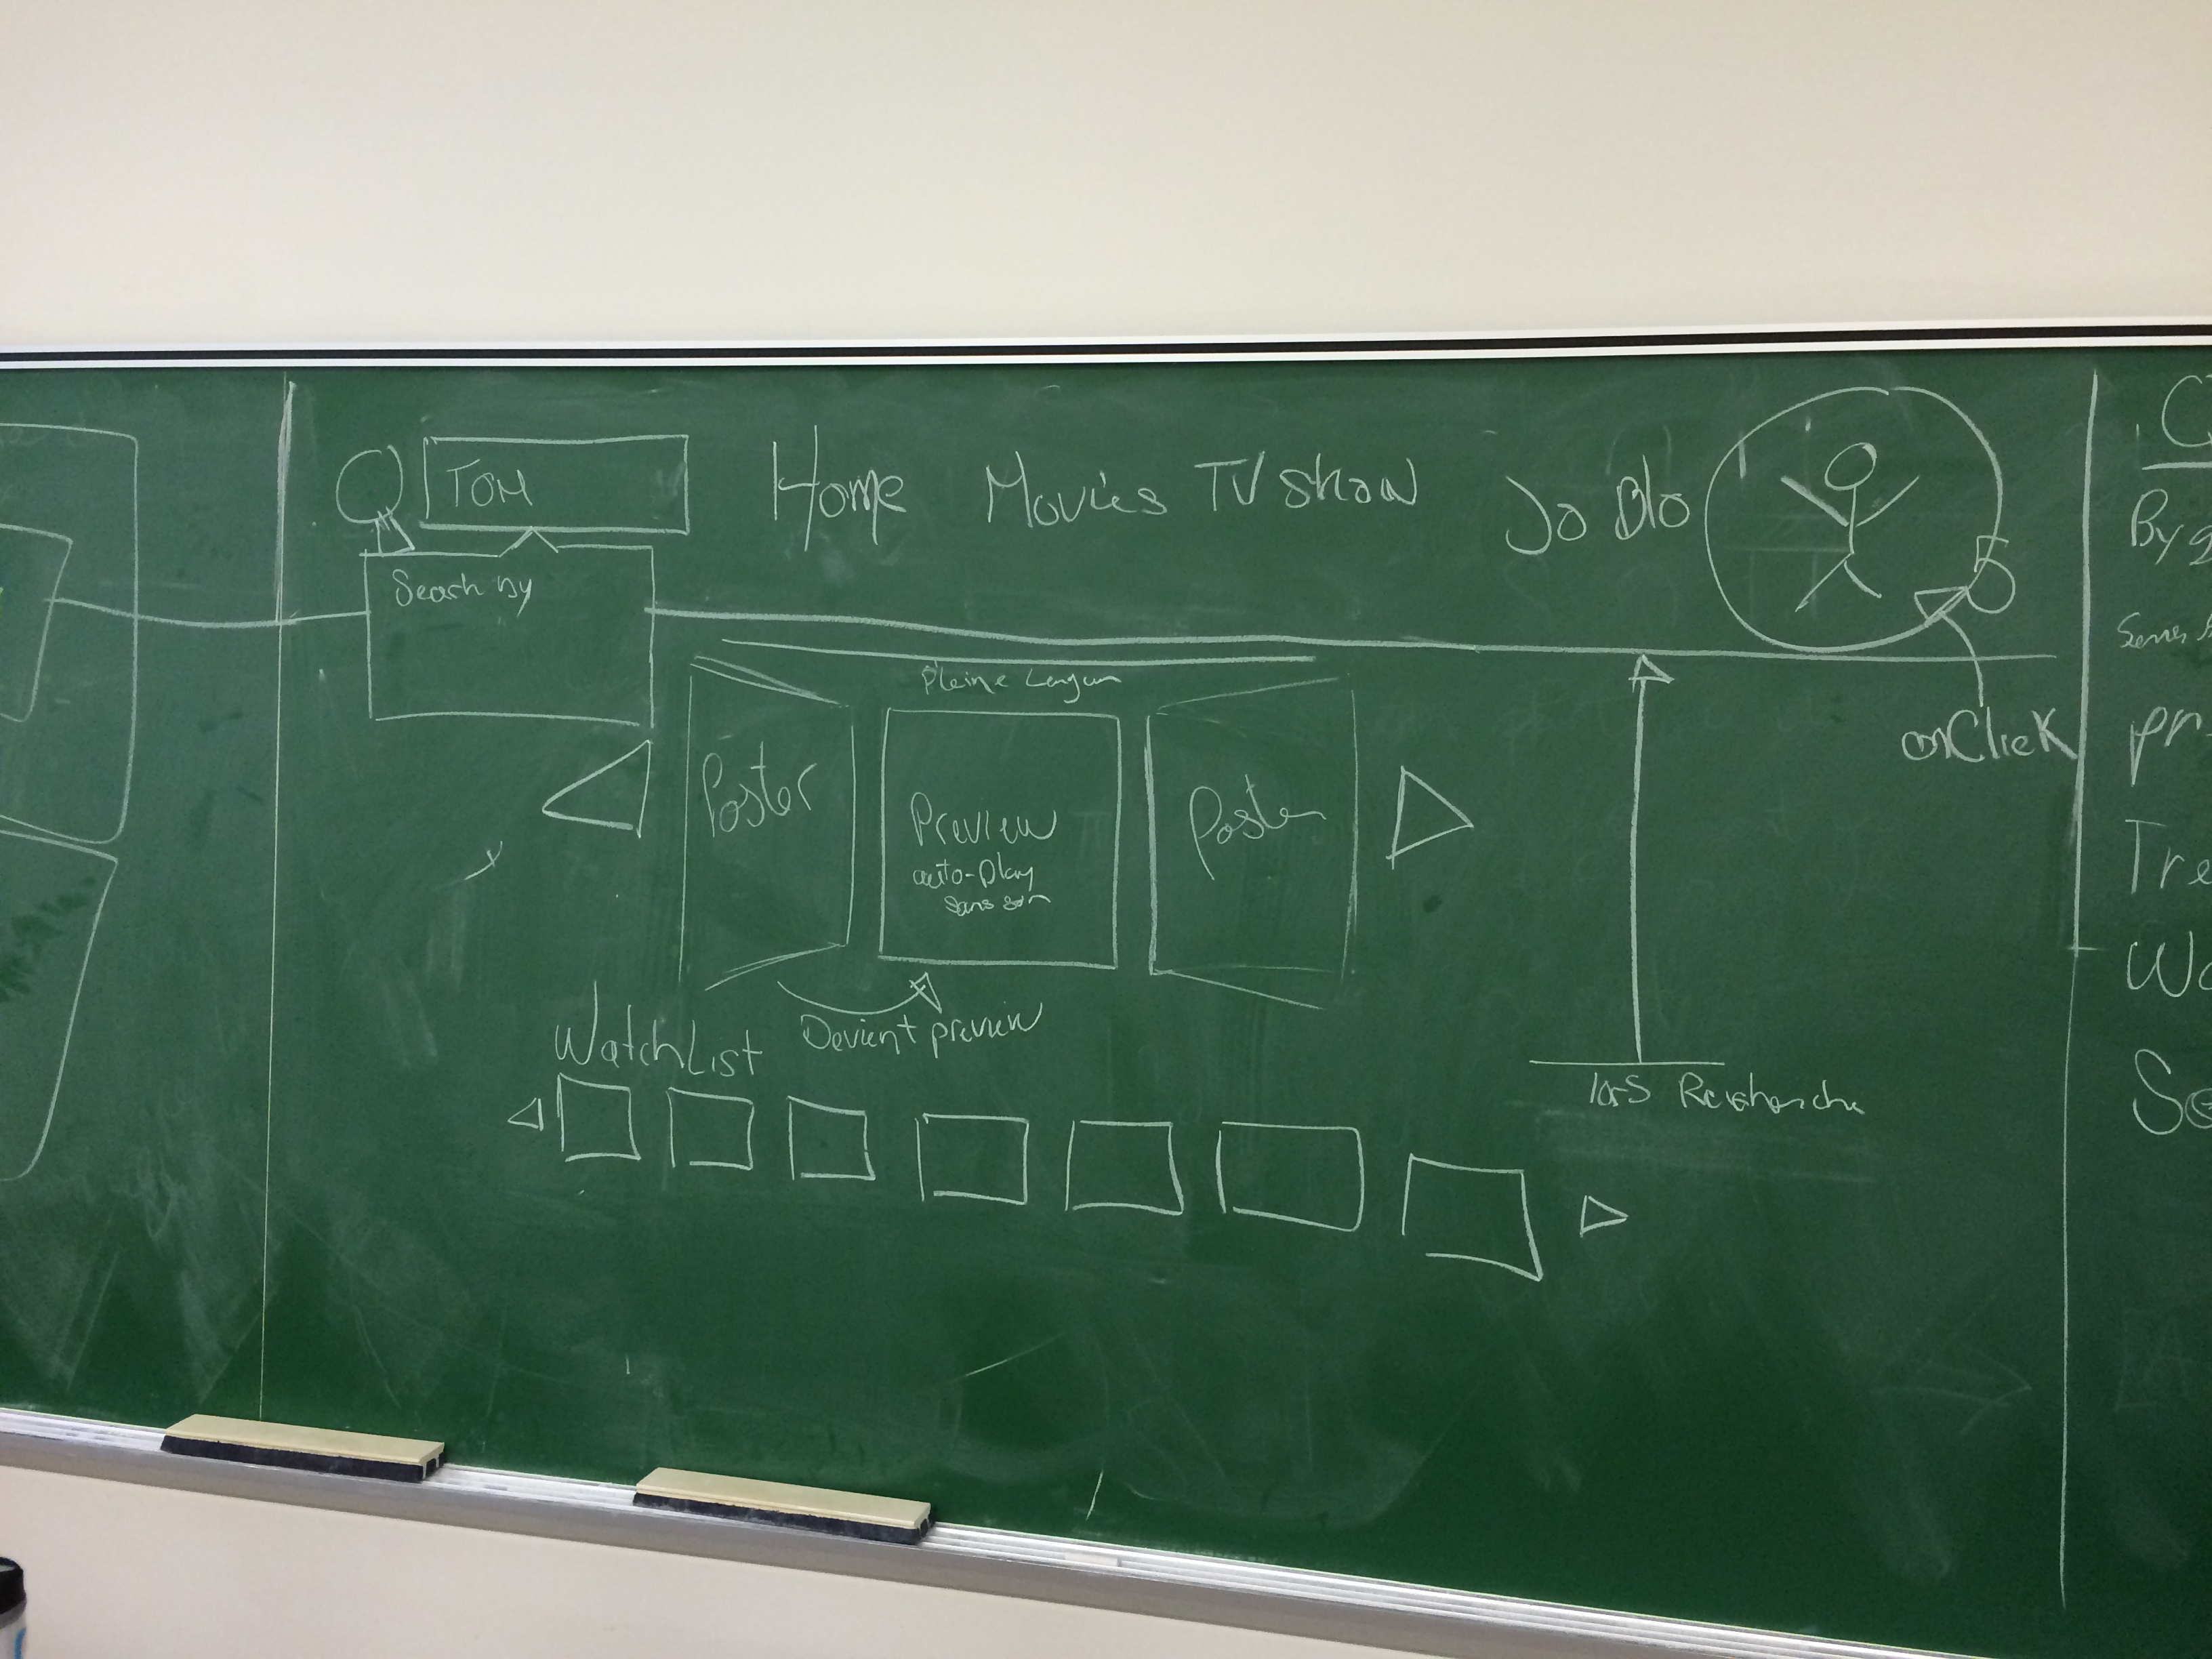 TOM
Home Movies TV show Jo Blo
Search by
Pleine Largeur
Poster
Preview
auto-play
sans son
Poster
onClick
Devient preview
WatchList
lors Recherche
By
Tre